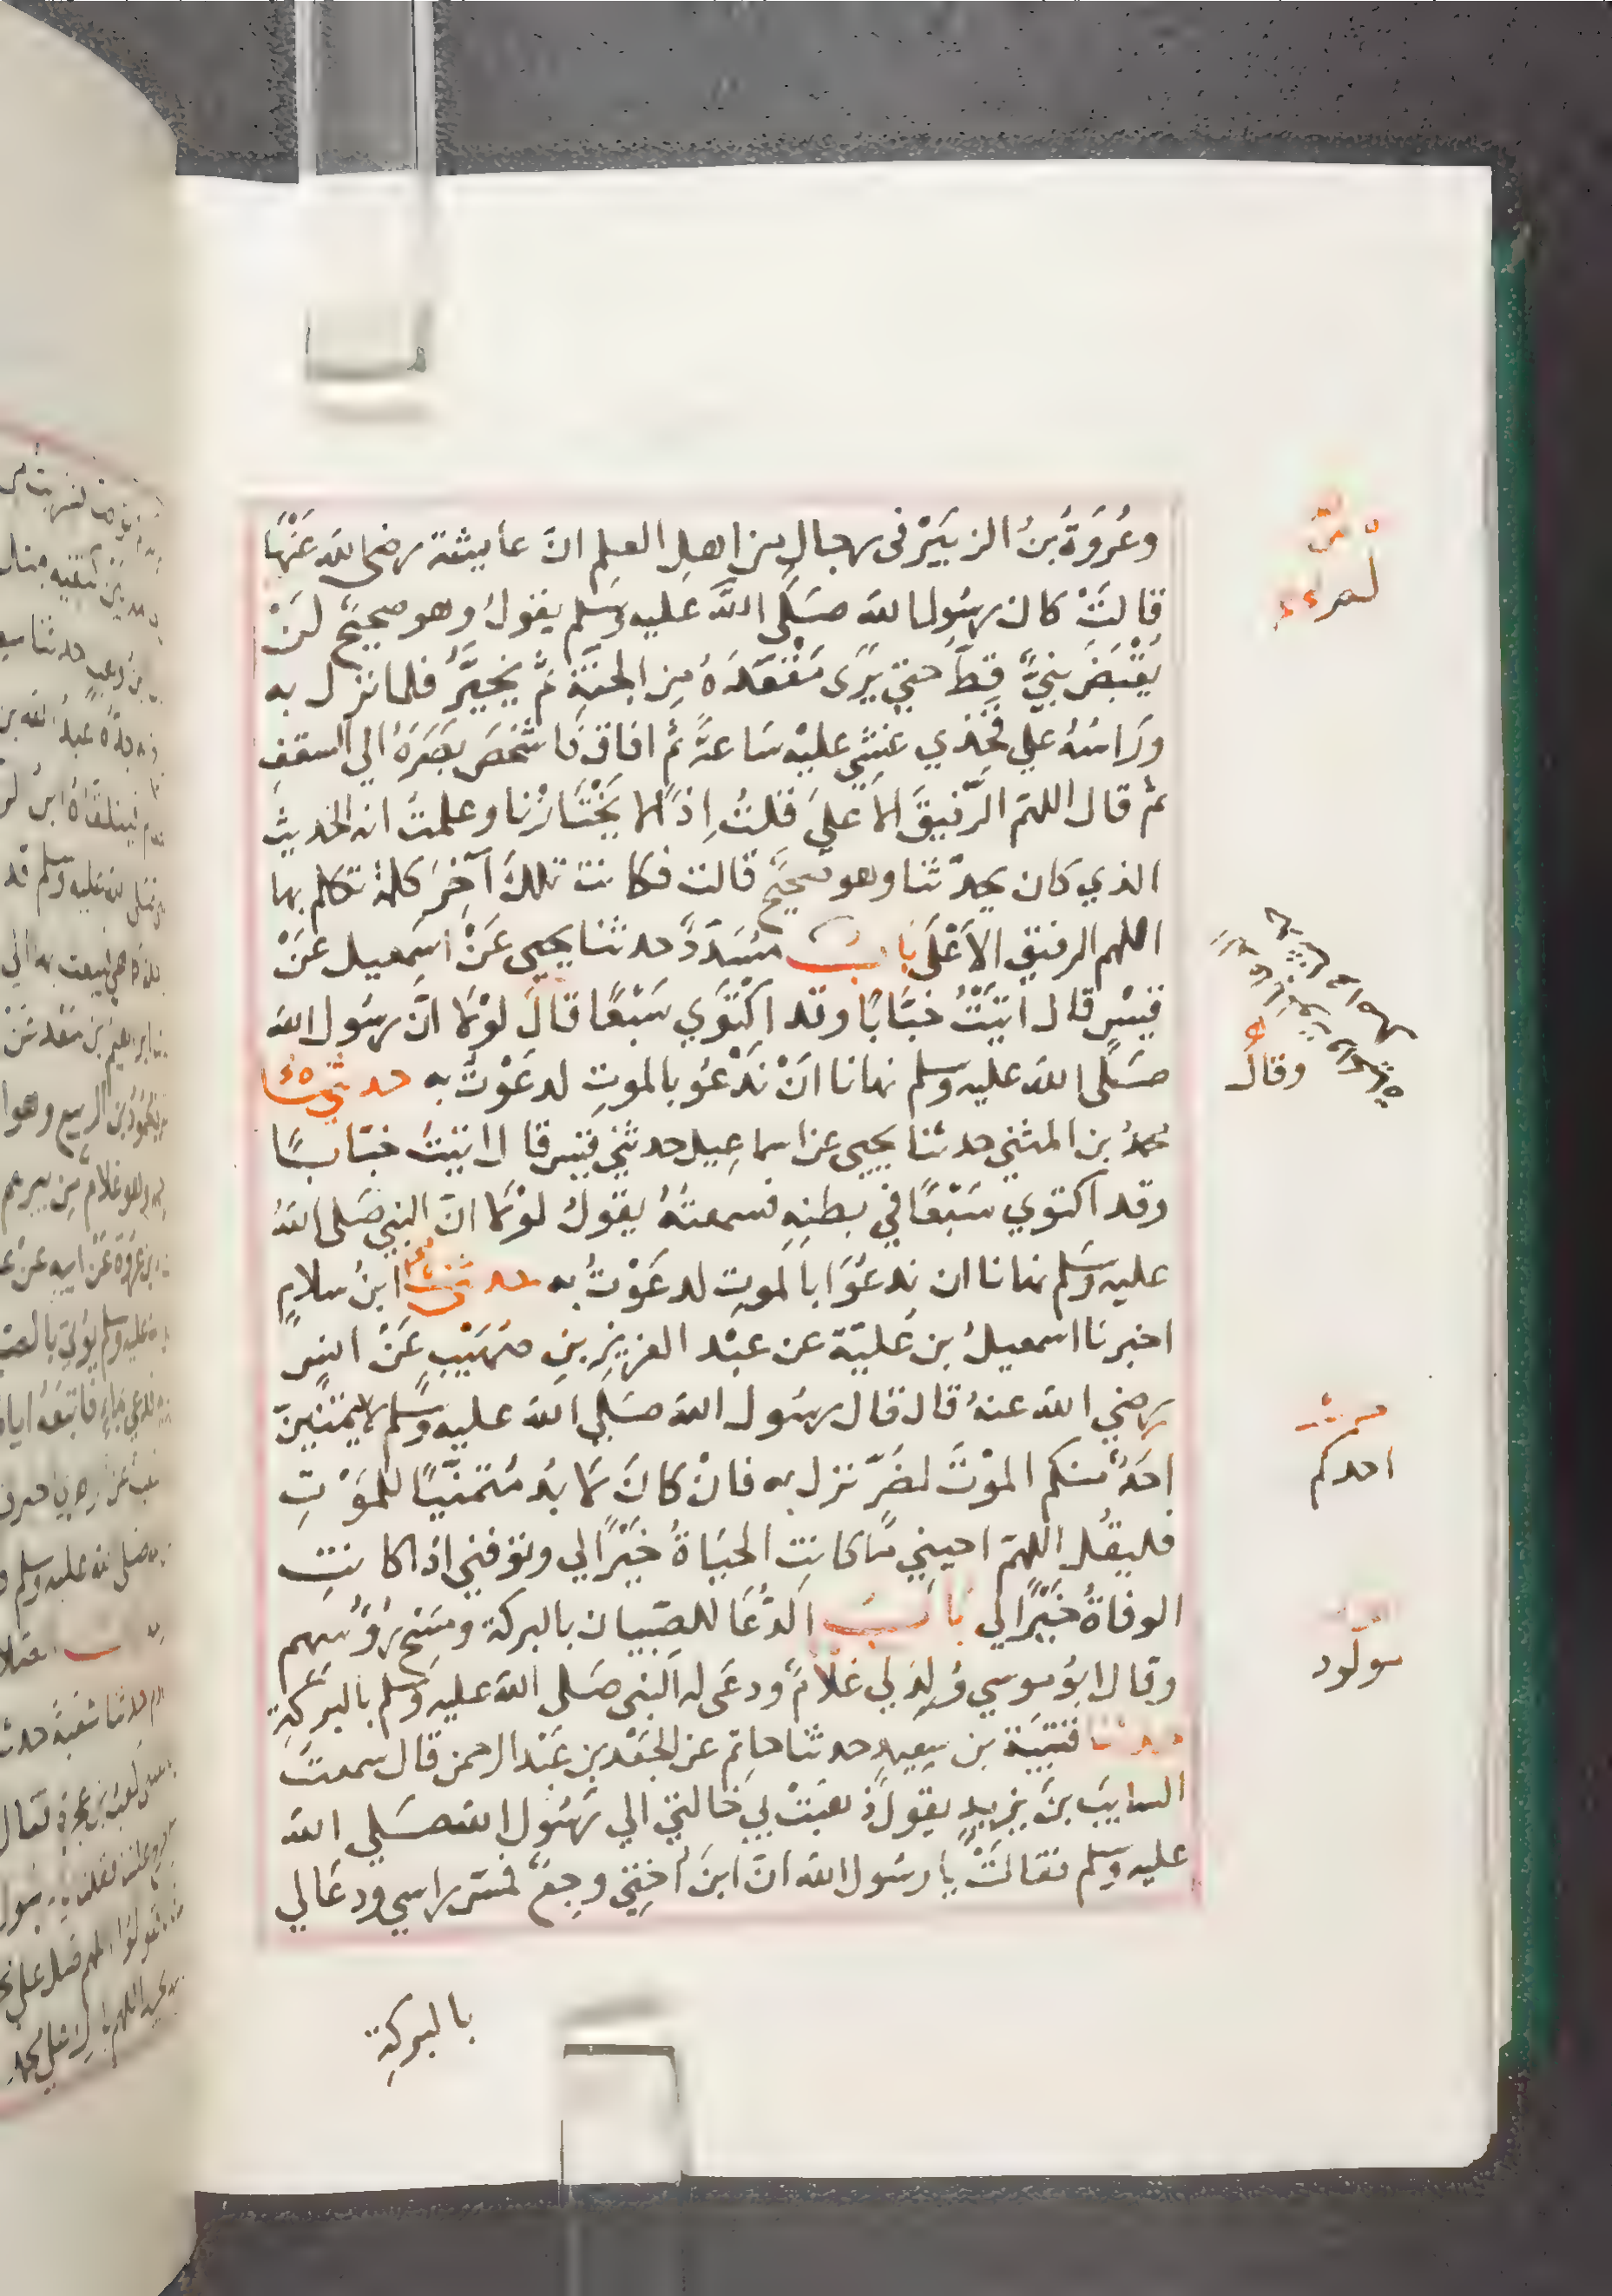 وعُرْوَةُ بنُ الزبَيْرْ فى رجالٍ من اهلِ العِلم انّ عايشة رضى الله عَنْهَا
قالتْ كان رسُول الله صَلَّى اللهُ عليه وسَلم يقولُ وهو صحيحٌ لَنْ
يُقْبَضَ نبيٌّ قطّ حتي يَرَى مَقْعَدَهُ مِن الجَنَّةِ ثمَّ يُخَيَّرُ فلما نزل به
ورَاسُهُ علي فَخِذي غُشِيَ عليْه سَاعةً ثمُ افاق فَاشْخَصَ بَصَرَهُ الي السقفِ
ثمُ قال اللهمّ الرَّفيقَ الاَعْلَى قلتُ اِذًا لا يَخْتَارُنا وعلمتُ انه الحديثُ
الذي كان يحدّثنا وهو صَحيحٌ قالت فكانت تلكَ آخِرَ كلمة تكلم بها
اللهم الرفيق الاَعْلَى بَابُ مسَدَّدٌ حدثنا يحيى عَنْ اسمعيل عَنْ
قيسٍ قال اتَيْتُ خبّابًا وقد اكْتَوَي سَبْعًا قالَ لوْلا انَّ رسُول الله
صَلى الله عليه وسلم نهانا انْ نَدْعُوَ بالموتِ لدعَوْتُ به حدثني
محمدُ بن المثني حدثنا يحيى عن اسماعيل حدثني قيس قال اتيْتُ خبّابًا
وقد اكتوي سَبْعًا في بطنِهِ فسمعتُهُ يقولُ لوْلا انّ النبي صَلى اللهُ
عليه وسَلم نهانا ان نَدعُوَا بالموتِ لدعَوْتُ به حدثنا ابنُ سلامٍ
اخبرنا اسمعيلُ بن عُليّة عن عبْد العزيزِ بنِ صُهَيْبٍ عَنْ انسٍ
رضي الله عنهُ قال قال رسُول الله صَلى الله عليه وسَلم لا يتمنّينّ
احَدٌ منكم الموْتَ لضُرّ نزل به فانْ كانَ لا بدّ مُتمنّيًا للموْتِ
فليقُل اللهمّ احيني ما كانتِ الحيَاةُ خيْرًا لي وتوفني اذا كانتِ
الوفاةُ خَيْرًا لي بَابُ الدُّعَا للصّبيان بالبركة ومَسْحِ رؤُسِهم
وقال ابوُ موسي وُلِدَ لي غلامٌ ودعَى له النبى صَلى الله عليه وسَلم بالبركةِ
حدثنا قتيْبَة بن سعيدٍ حدثنا حاتمٌ عن الجعْد بن عَبْد الرحمن قال سمعتُ
السايبَ بنَ يزيدٍ يقول ذهبَتْ بي خالتي الي رَسُول الله صَلي الله
عليه وسلم فقالتْ يا رسُول الله انّ ابنَ اُختي وجِعٌ فمسَح راسي ودعَا لي
بالبركةِ
وقال
احدكم
مولود